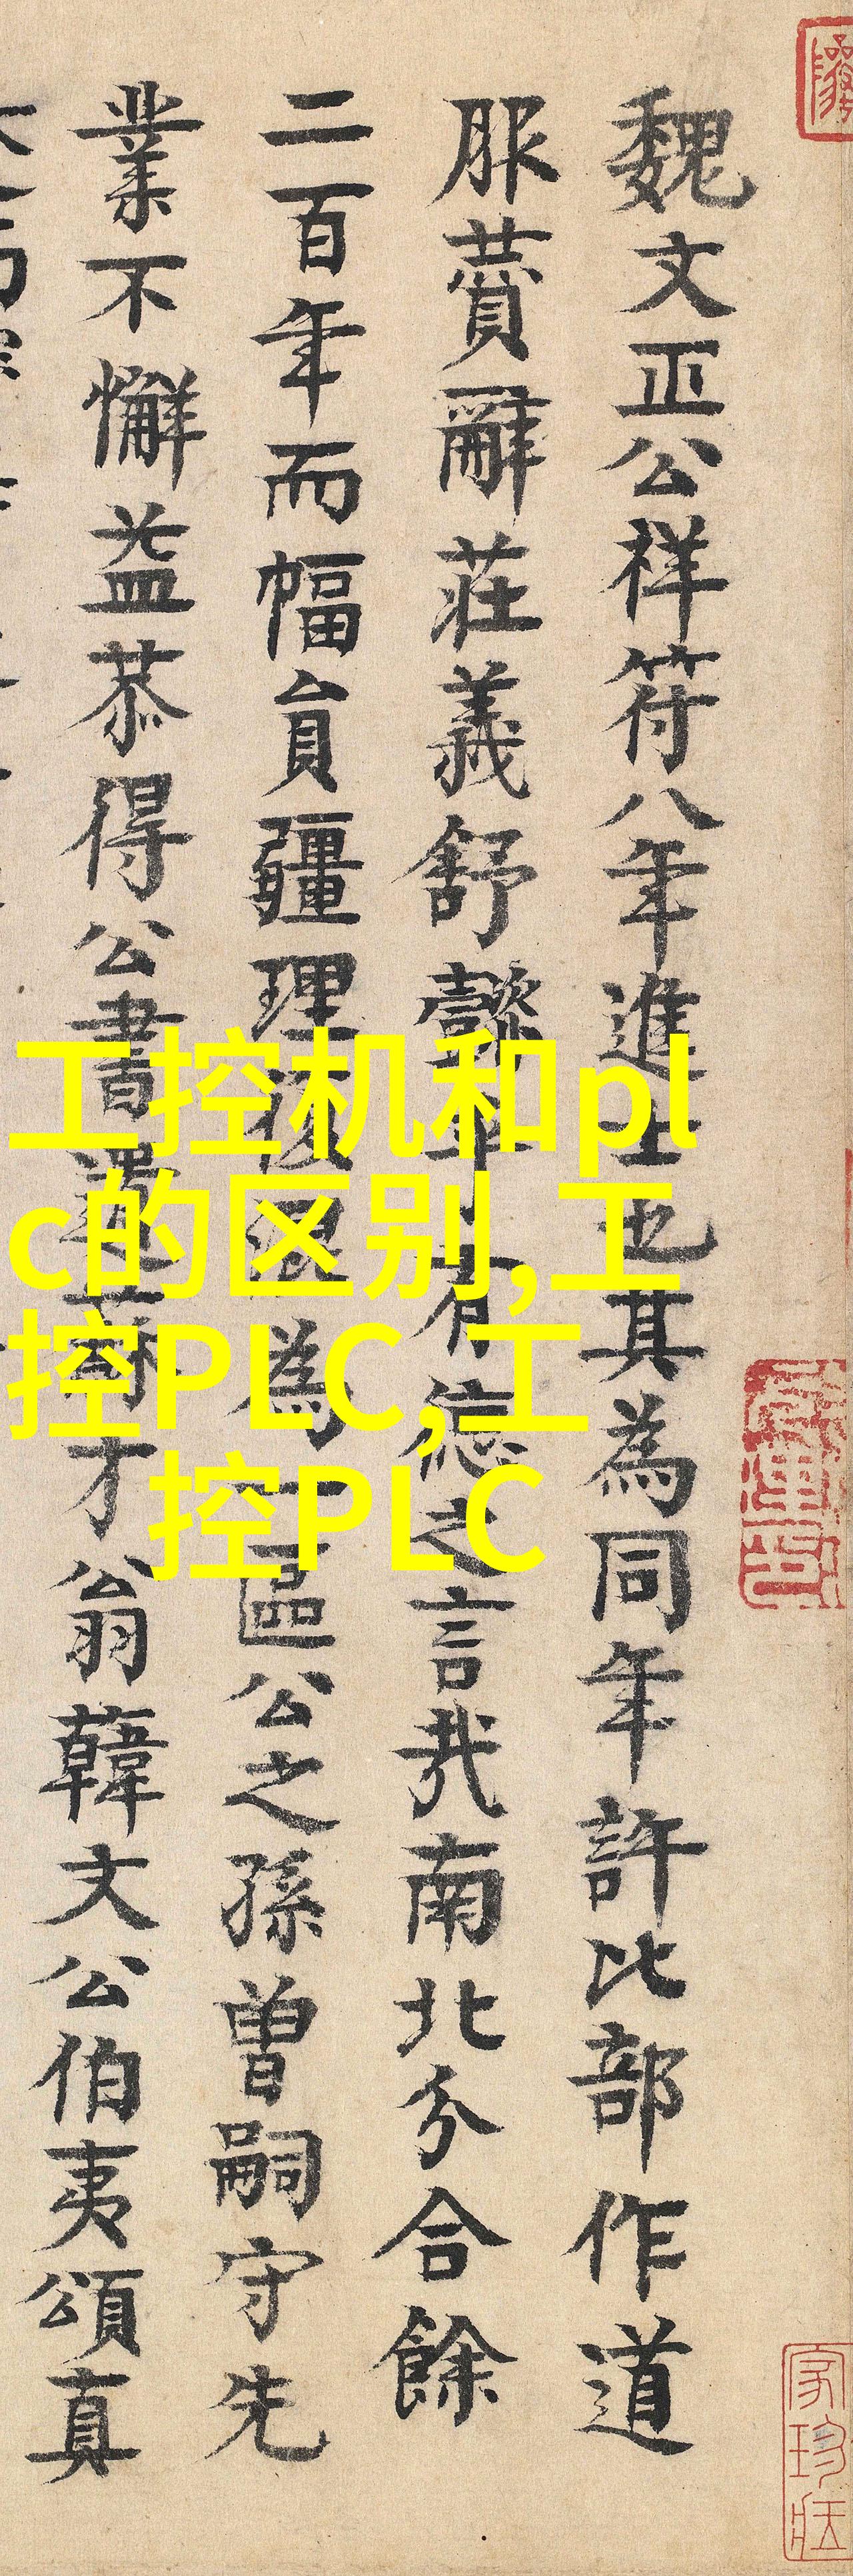 魏文正公祥符八年進士也其為同年許比部作道
服賛辭莊義舒懿乎有德之言哉南北分合餘
二百年而幅員疆理復混為一區公之孫曾嗣守先
業不懈益恭得公書還舊才翁韓文公伯夷頌真
工控机和pl
c的区别,工
控PLC,工
控PLC